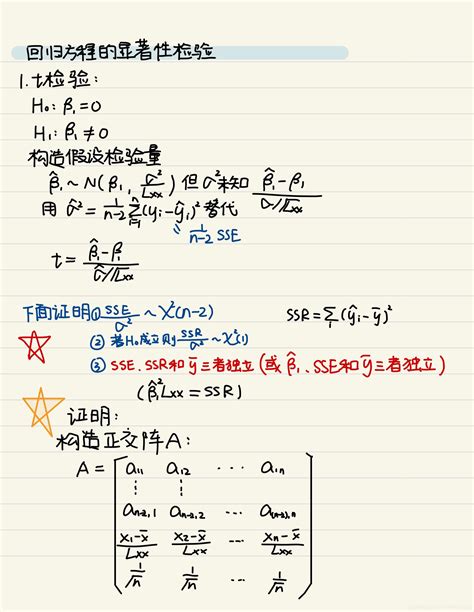 回归方程的显著性检验
1. t检验:
H₀: β₁=0
H₁: β₁≠0
构造假设检验量
β̂₁ ~ N(β₁, σ²/Lxx) 但σ²未知 (β̂₁-β₁)/(σ/√Lxx)
用 σ̂² = 1/(n-2) Σᵢ₌₁ⁿ(yᵢ-ŷᵢ)² 替代
1/(n-2) SSE
t = (β̂₁-β₁)/(σ̂/√Lxx)
下面证明① SSE/σ² ~ χ²(n-2) SSR = Σᵢ(ŷᵢ-ȳ)²
② 若H₀成立则 SSR/σ² ~ χ²(1)
③ SSE、SSR和ȳ三者独立(或β̂₁、SSE和ȳ三者独立)
(β̂₁²Lxx = SSR)
证明:
构造正交阵A:
A = [ a₁₁ a₁₂ ⋯ a₁ₙ
⋮ ⋮
aₙ₋₂,₁ aₙ₋₂,₂ ⋯ a₍ₙ₋₂₎,ₙ
(x₁-x̄)/√Lxx (x₂-x̄)/√Lxx ⋯ (xₙ-x̄)/√Lxx
1/√n 1/√n ⋯ 1/√n ]